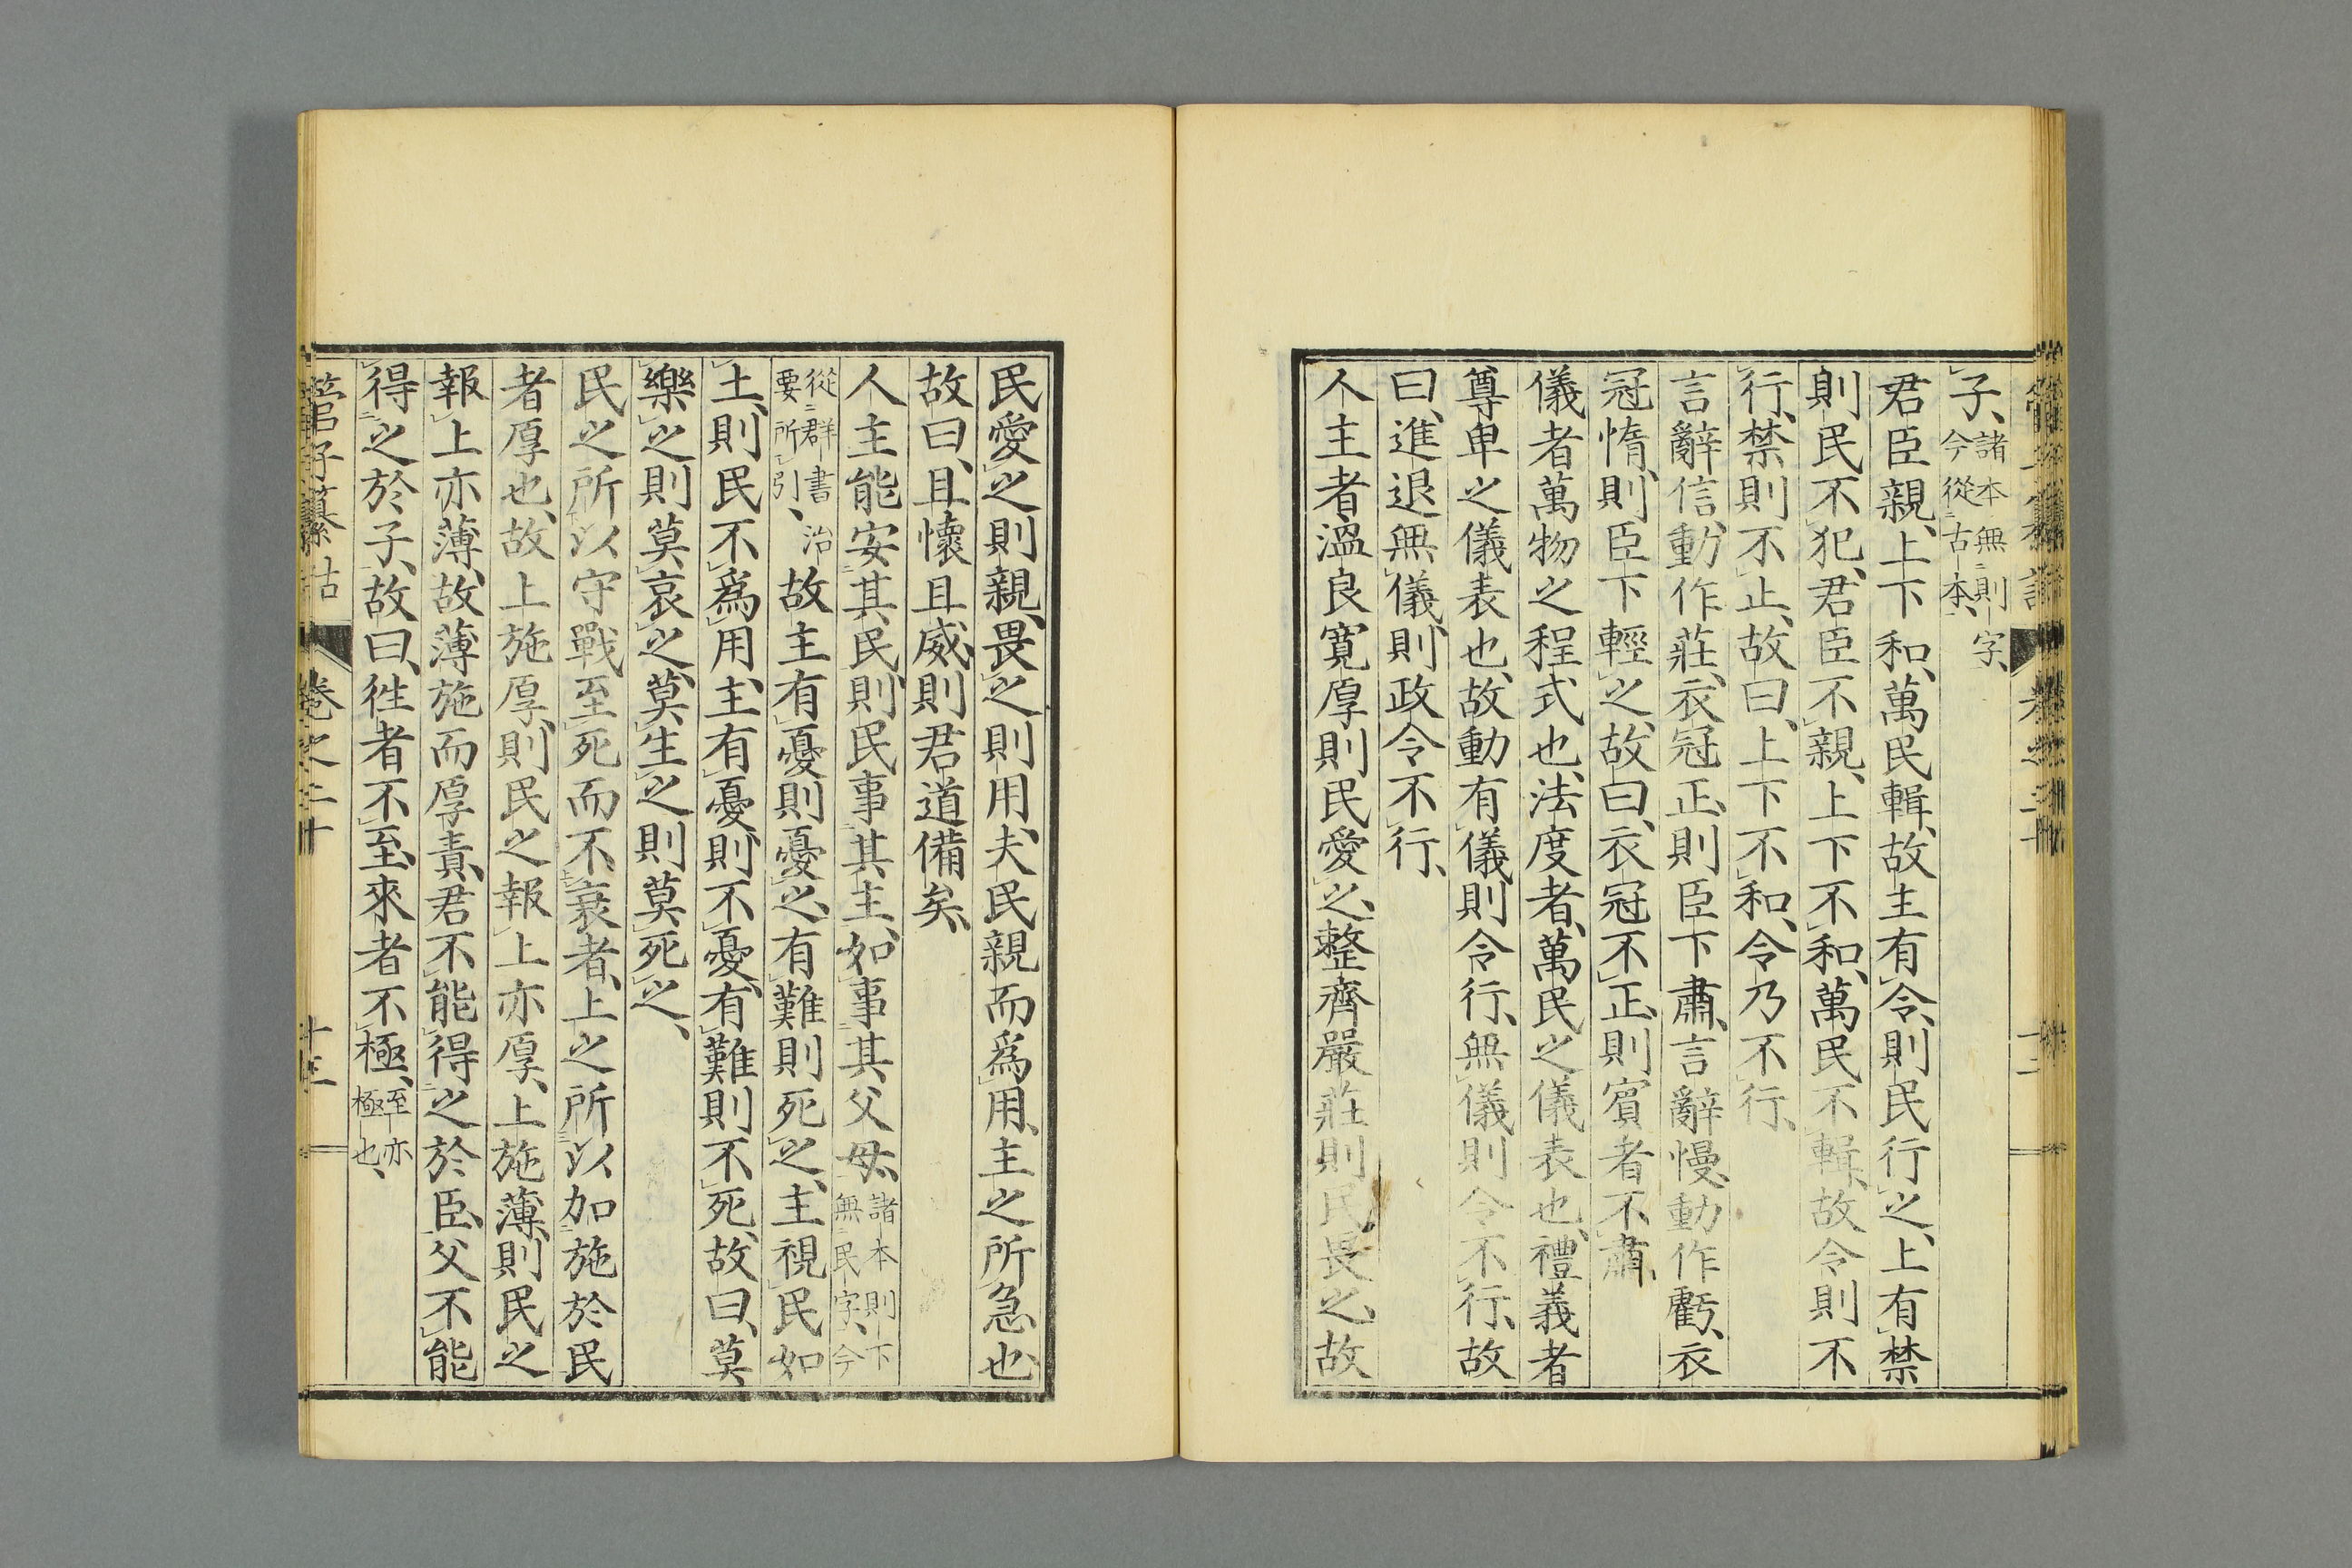 子、諸本無則字、今從古本、
君臣親、上下和、萬民輯、故主有令、則民行之、上有禁
則民不犯、君臣不親、上下不和、萬民不輯、故令則不
行、禁則不止、故曰、上下不和、令乃不行、
言辭信、動作莊、衣冠正、則臣下肅、言辭慢、動作虧、衣
冠惰、則臣下輕之、故曰、衣冠不正、則賓者不肅、
儀者萬物之程式也、法度者、萬民之儀表也、禮義者
尊卑之儀表也、故動有儀則令行、無儀則令不行、故
曰、進退無儀、則政令不行、
人主者溫良寛厚則民愛之、整齊嚴莊則民畏之、故
民愛之則親、畏之則用、夫民親而爲用、主之所急也、
故曰、且懷且威、則君道備矣、
人主能安其民、則民事其主、如事其父母、諸本則下無民字、今
從群書治要所引、故主有憂則憂之、有難則死之、主視民如
土、則民不爲用、主有憂則不憂、有難則不死、故曰、莫
樂之則莫哀之、莫生之則莫死之、
民之所以守戰至死而不衰者、上之所以加施於民
者厚也、故上施厚、則民之報上亦厚、上施薄、則民之
報上亦薄、故薄施而厚責、君不能得之於臣、父不能
得之於子、故曰、徃者不至、來者不極、至亦極也、
管子纂詁 卷之二十 十三